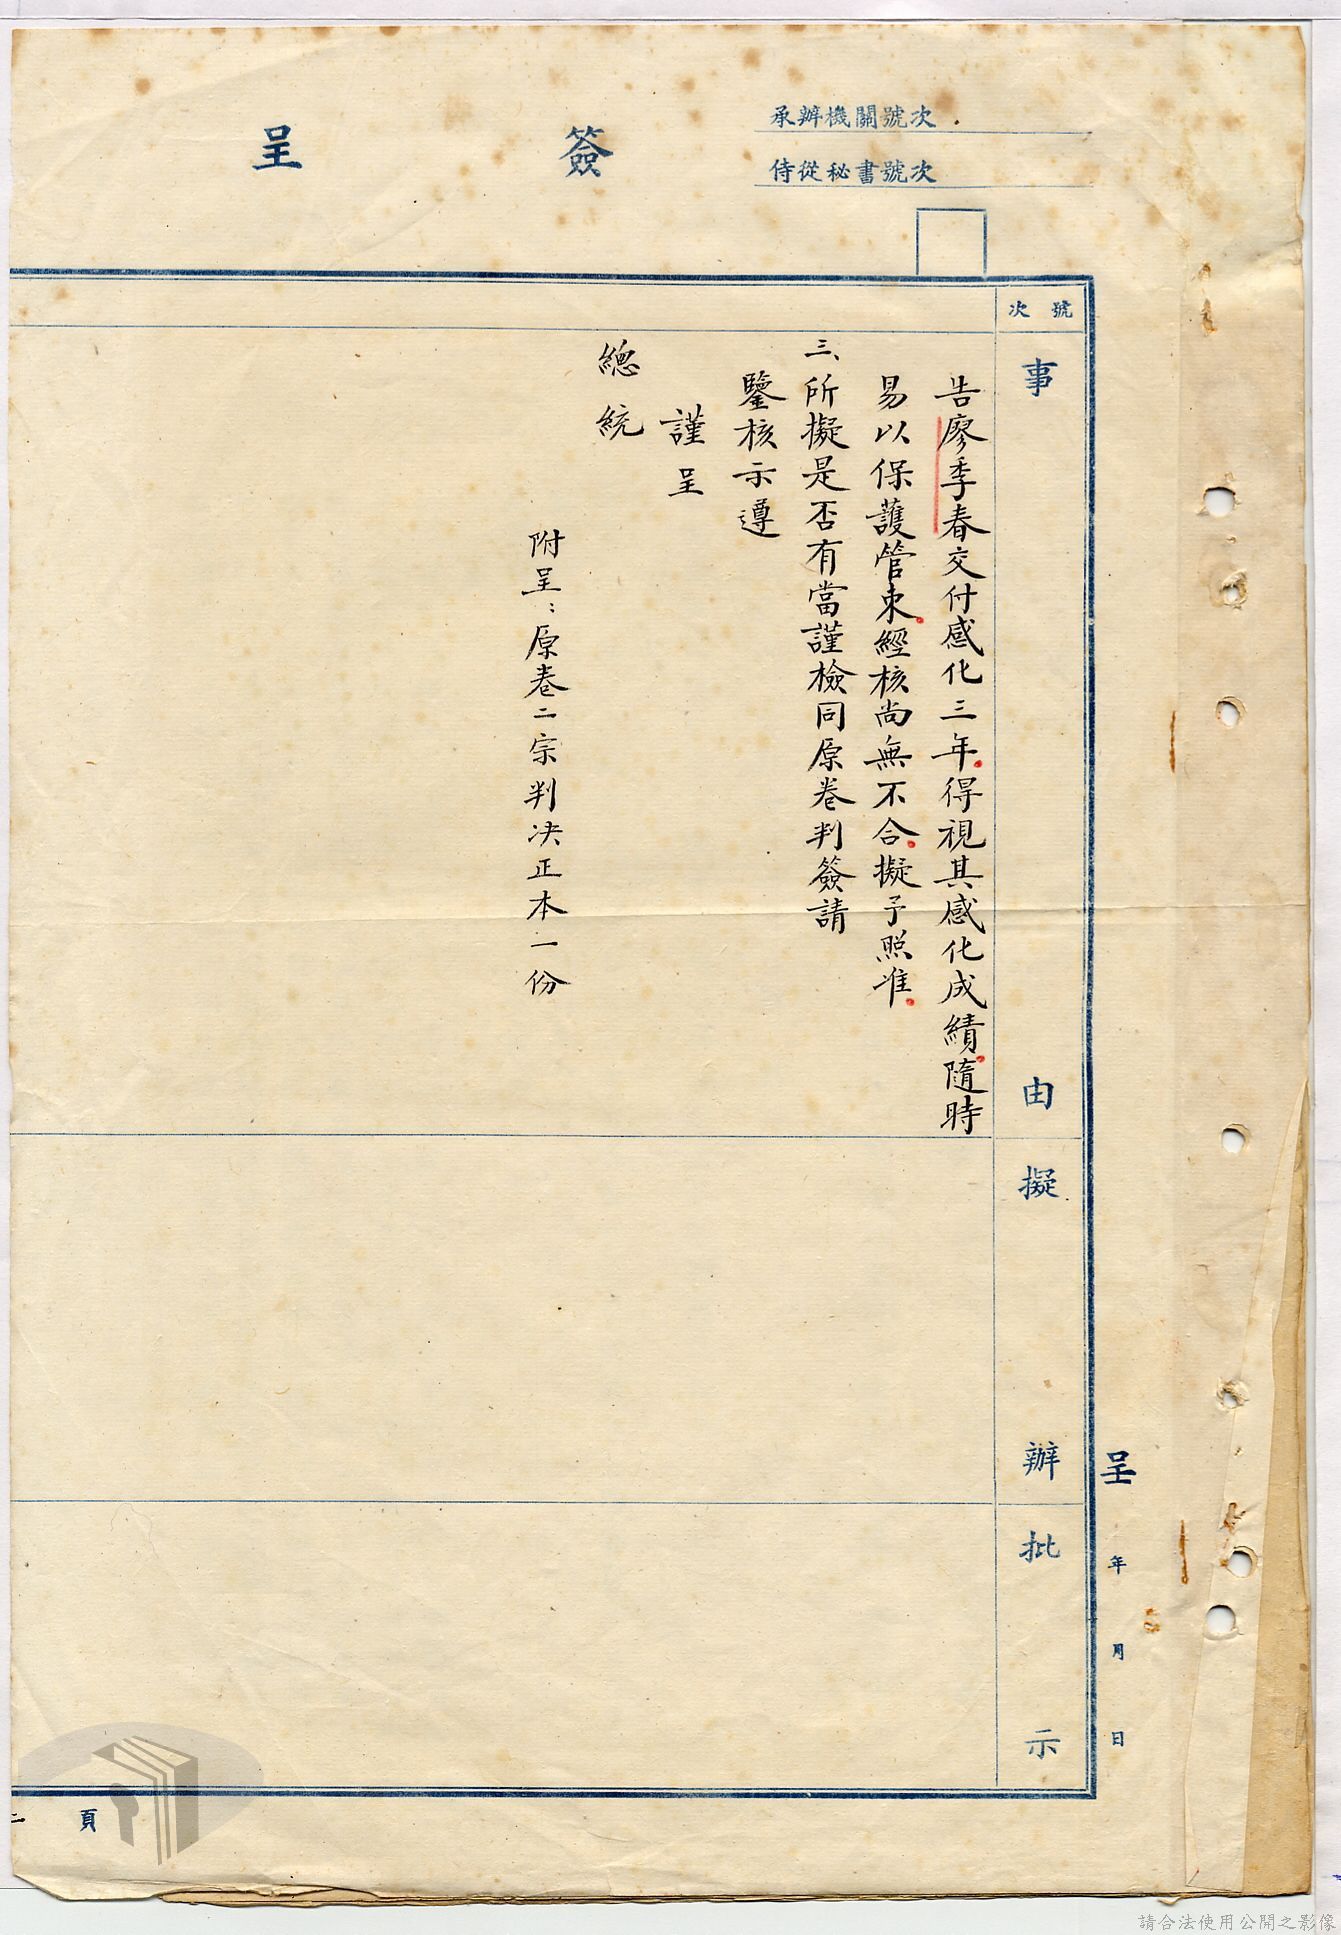 簽呈
承辦機關號次
侍從秘書號次
號次
事由
擬辦
批示
呈 年 月 日
告廖季春交付感化三年得視其感化成績隨時
易以保護管束經核尚無不合擬予照准
三、所擬是否有當謹檢同原卷判簽請
鑒核示遵
謹呈
總統
附呈：原卷二宗判決正本一份
二頁
請合法使用公開之影像